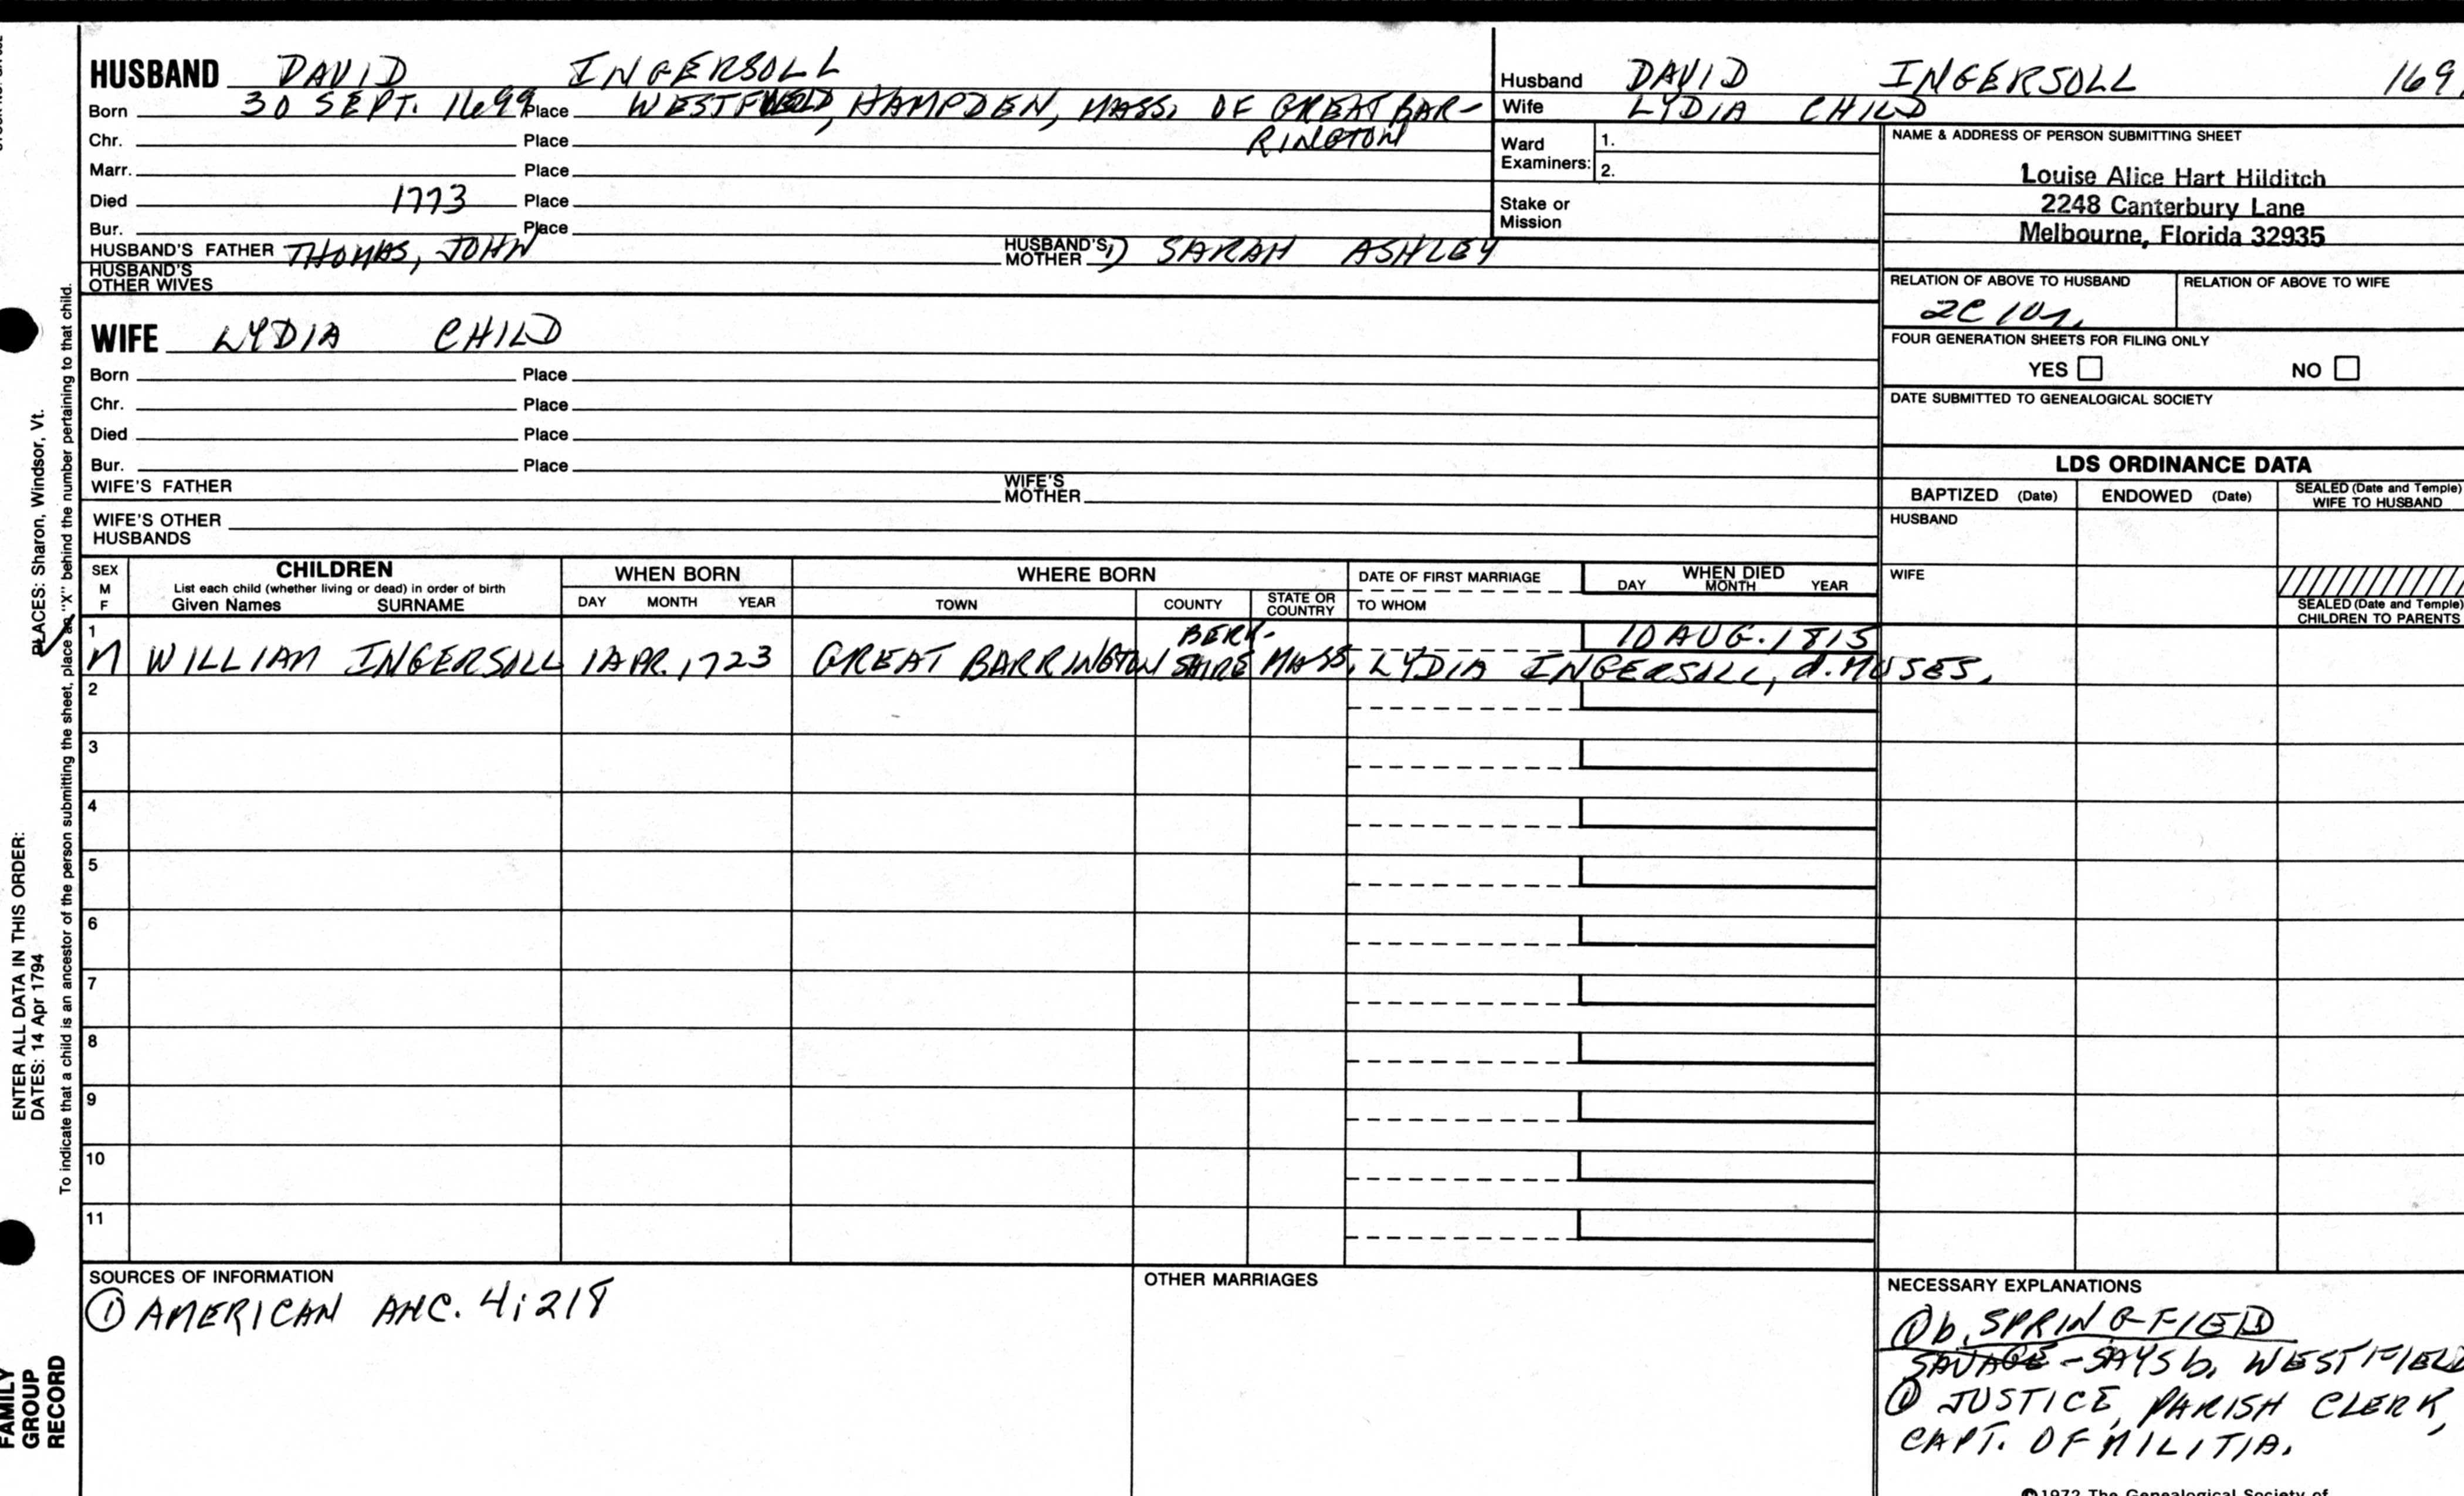 HUSBAND DAVID INGERSOLL
Born 30 SEPT. 1699 Place WESTFIELD, HAMPDEN, MASS. OF GREAT BAR-
RINGTON
Chr. Place
Marr. Place
Died 1773 Place
Bur. Place
HUSBAND'S FATHER THOMAS, JOHN HUSBAND'S MOTHER 1) SARAH ASHLEY
HUSBAND'S OTHER WIVES
WIFE LYDIA CHILD
Born Place
Chr. Place
Died Place
Bur. Place
WIFE'S FATHER WIFE'S MOTHER
WIFE'S OTHER HUSBANDS
Husband DAVID INGERSOLL 169
Wife LYDIA CHILD
Ward Examiners: 1.
2.
Stake or Mission
NAME & ADDRESS OF PERSON SUBMITTING SHEET
Louise Alice Hart Hilditch
2248 Canterbury Lane
Melbourne, Florida 32935
RELATION OF ABOVE TO HUSBAND RELATION OF ABOVE TO WIFE
2C 10r.
FOUR GENERATION SHEETS FOR FILING ONLY
YES NO
DATE SUBMITTED TO GENEALOGICAL SOCIETY
LDS ORDINANCE DATA
BAPTIZED (Date) ENDOWED (Date) SEALED (Date and Temple) WIFE TO HUSBAND
HUSBAND
WIFE
SEALED (Date and Temple) CHILDREN TO PARENTS
SEX M F
CHILDREN
List each child (whether living or dead) in order of birth
Given Names SURNAME
WHEN BORN
DAY MONTH YEAR
WHERE BORN
TOWN COUNTY STATE OR COUNTRY
DATE OF FIRST MARRIAGE
TO WHOM
WHEN DIED
DAY MONTH YEAR
1 M WILLIAM INGERSOLL 1 APR. 1723 GREAT BARRINGTON BERK-SHIRE MASS. LYDIA INGERSOLL, d. MOSES. 10 AUG. 1815
2
3
4
5
6
7
8
9
10
11
SOURCES OF INFORMATION
① AMERICAN ANC. 4:218
OTHER MARRIAGES
NECESSARY EXPLANATIONS
① b. SPRINGFIELD
SAVAGE - SAYS b. WESTFIELD
① JUSTICE, PARISH CLERK,
CAPT. OF MILITIA.
©1972 The Genealogical Society of
ENTER ALL DATA IN THIS ORDER:
DATES: 14 Apr 1794
PLACES: Sharon, Windsor, Vt.
To indicate that a child is an ancestor of the person submitting the sheet, place an "X" behind the number pertaining to that child.
FAMILY
GROUP
RECORD